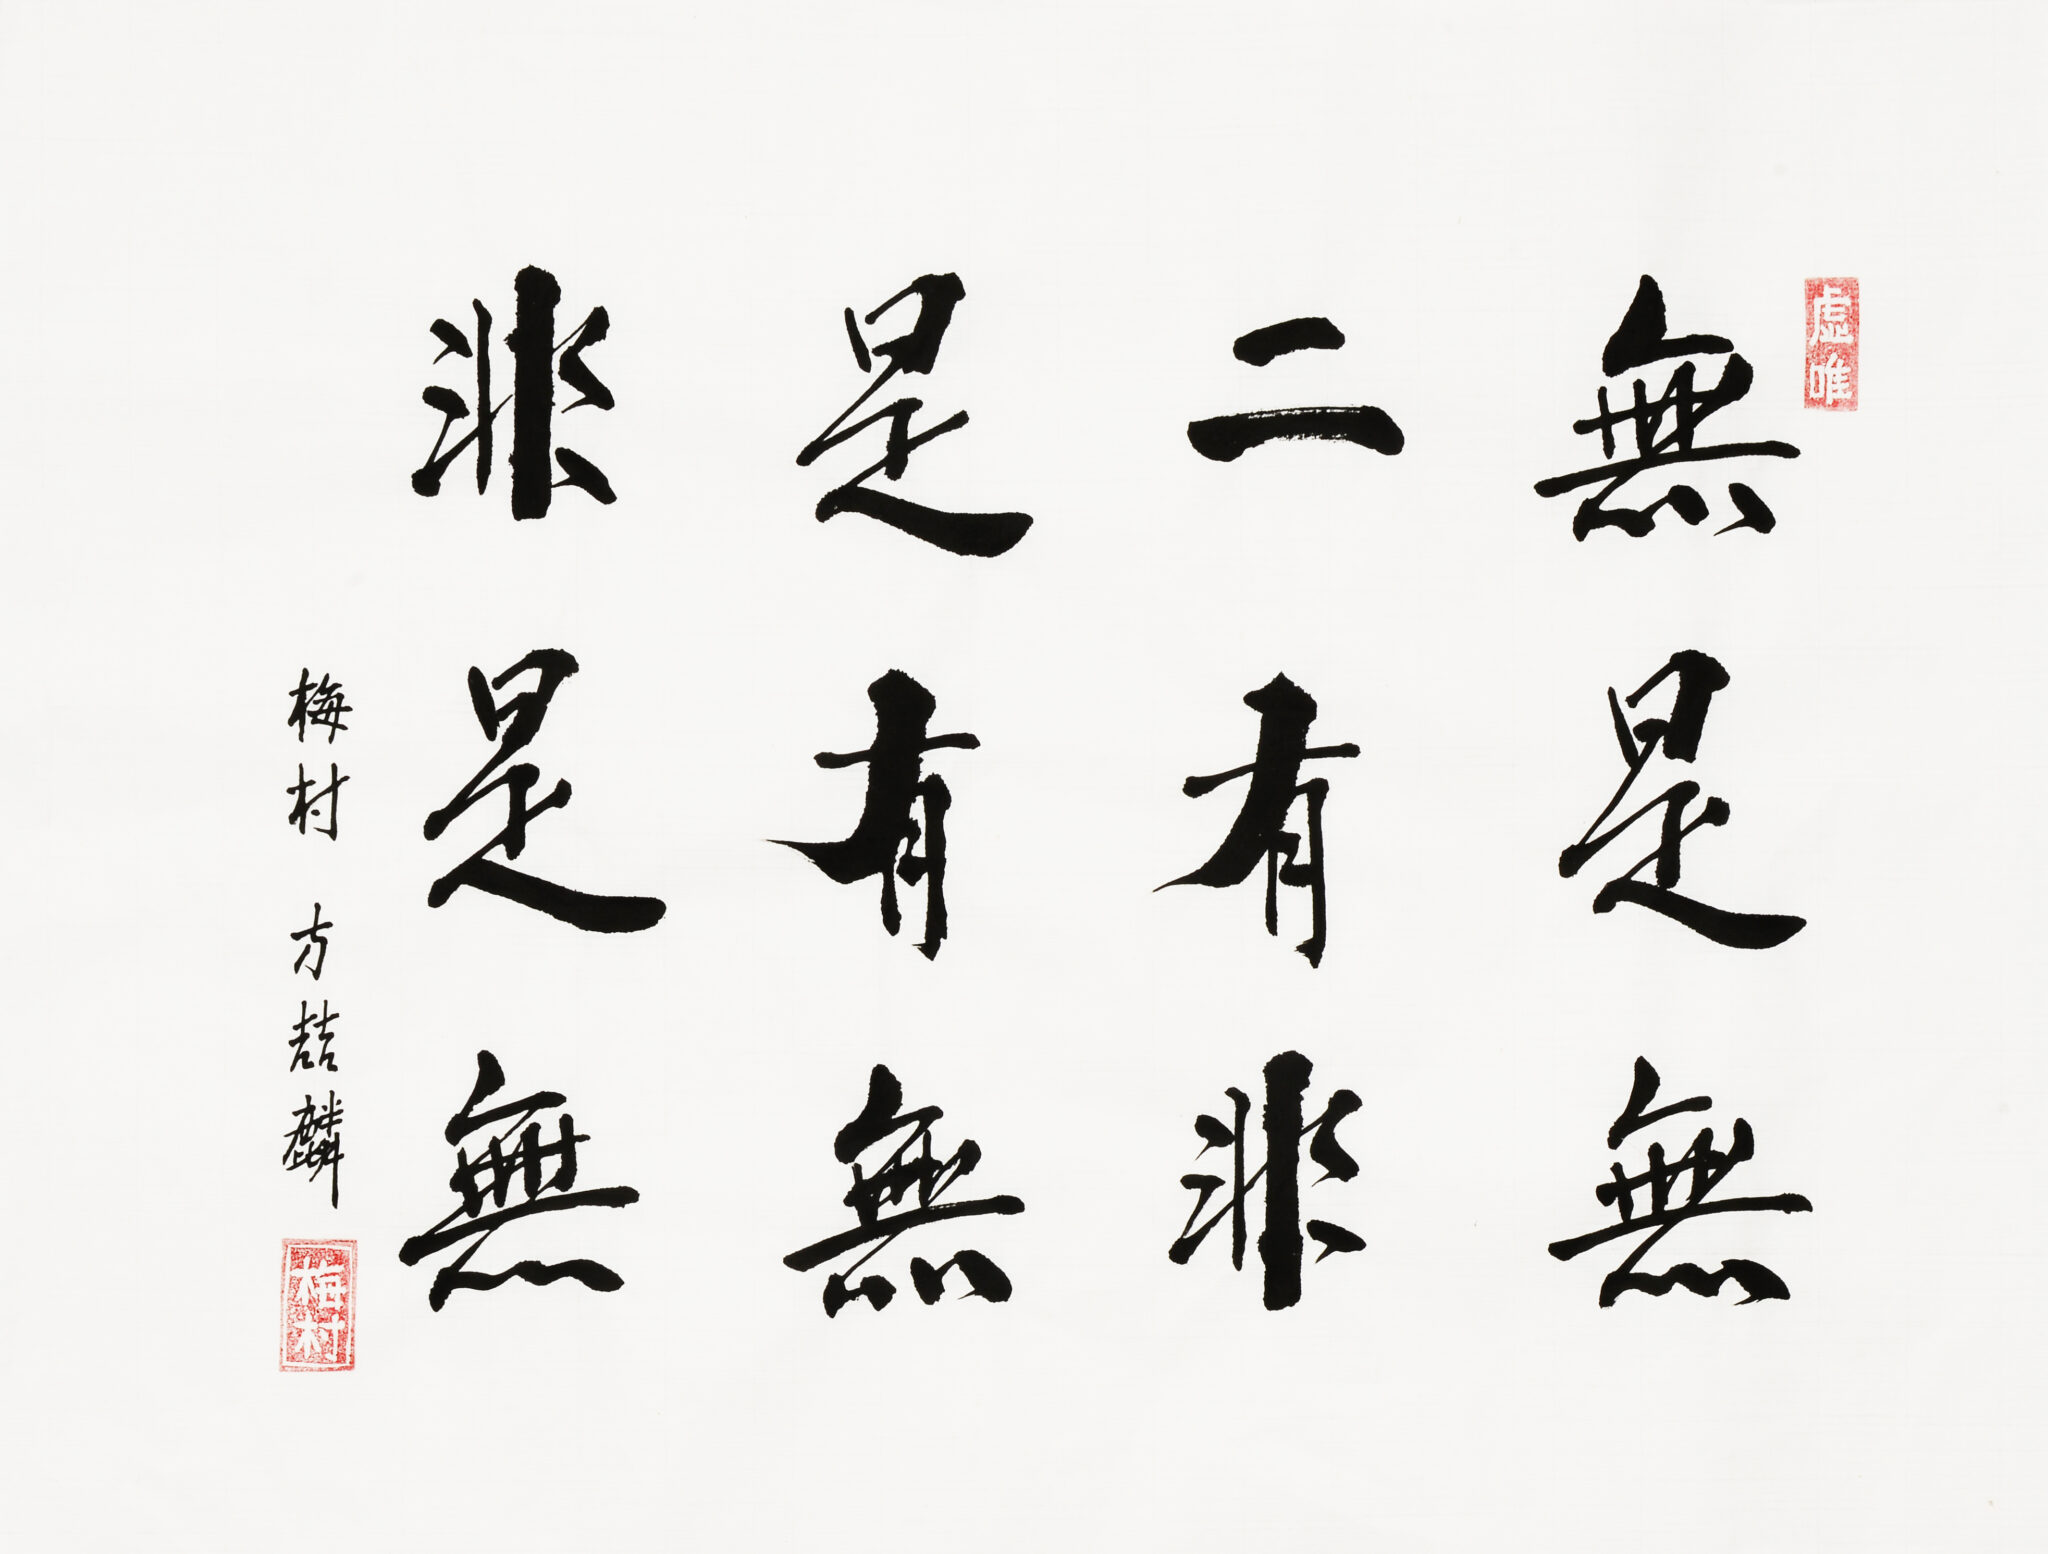 虚唯
無是無
二有非
是有無
非是無
梅村 方喆麟
梅村